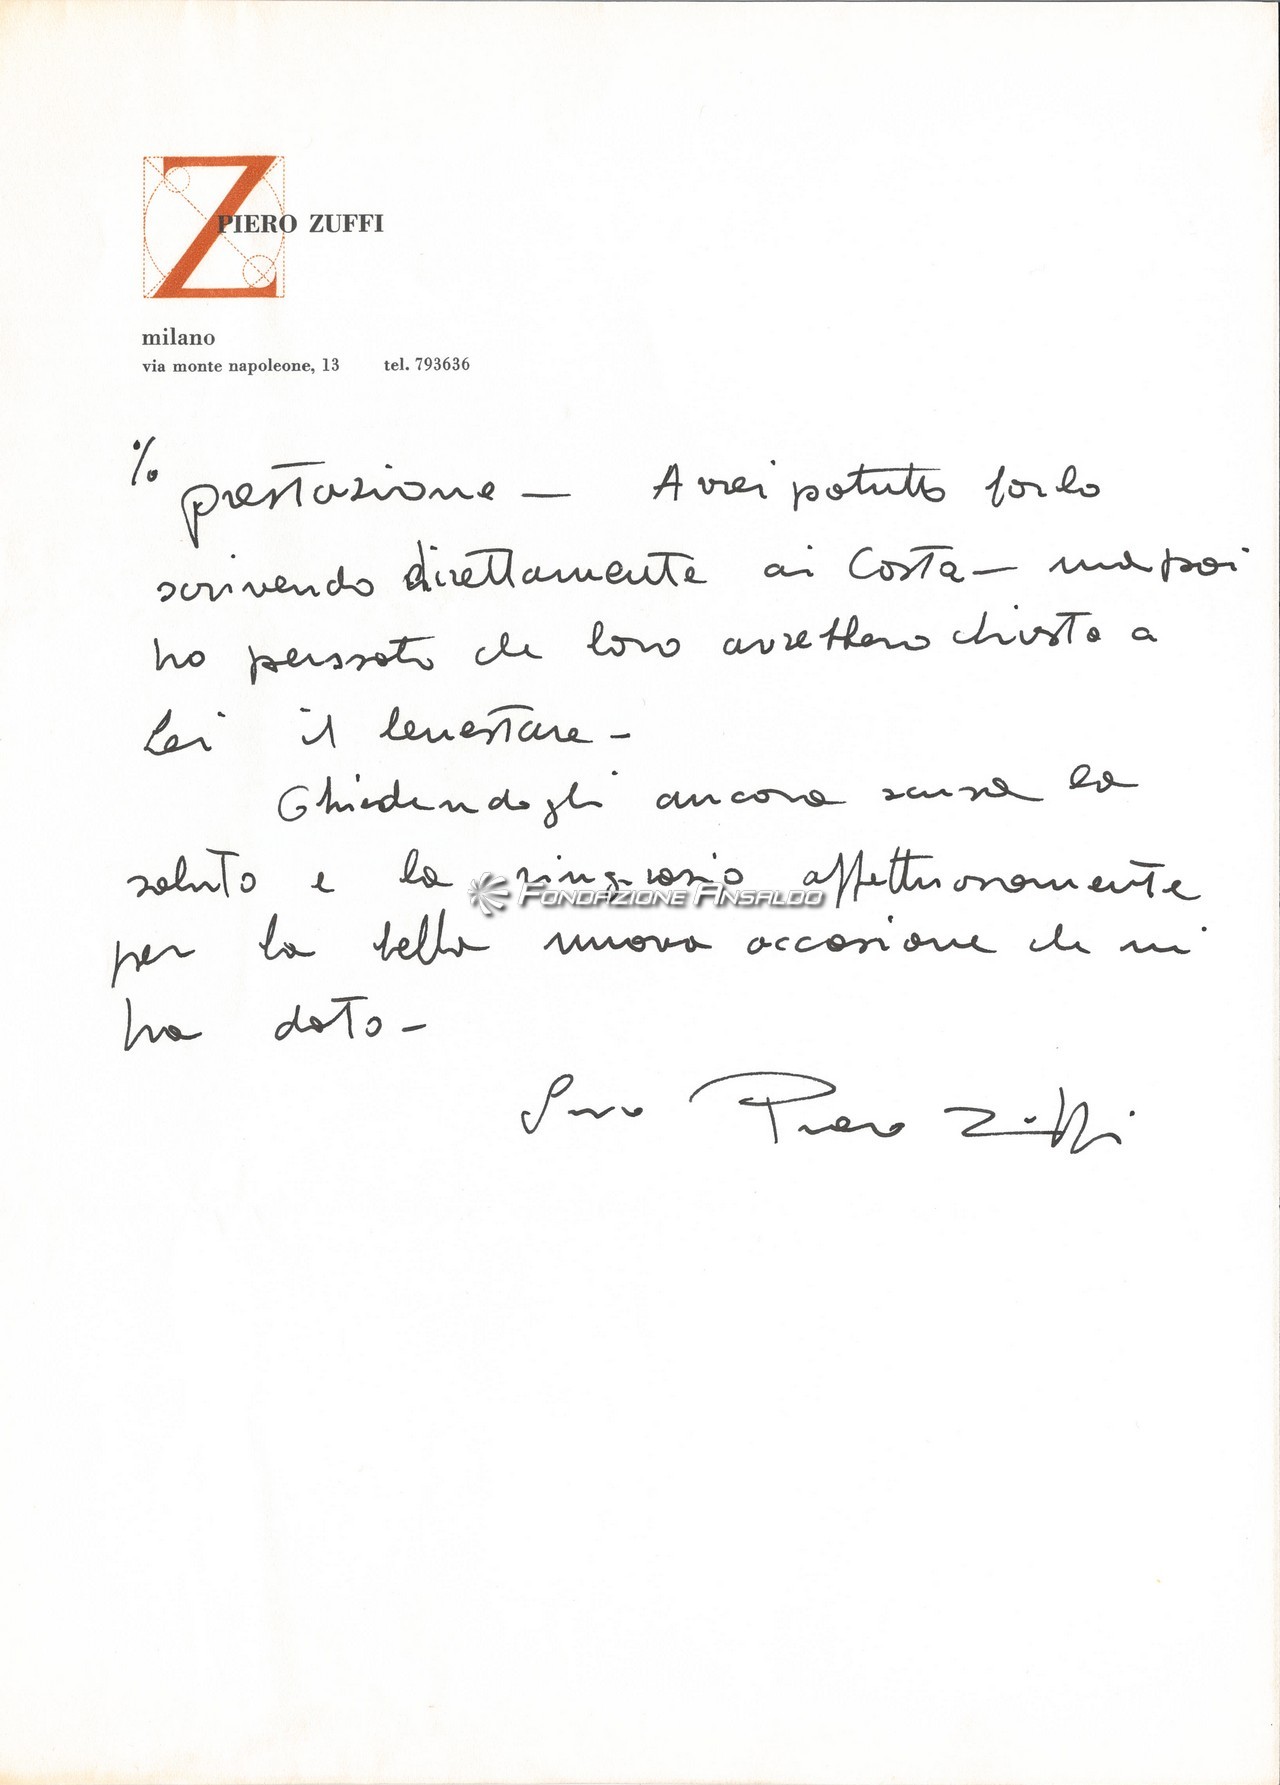 Z
PIERO ZUFFI
milano
via monte napoleone, 13 tel. 793636
%
prestazione — Avrei potuto farlo
scrivendo direttamente ai Costa — ma poi
ho pensato che loro avrebbero chiesto a
Lei il benestare —
Chiedendogli ancora scusa la
saluto e la ringrazio affettuosamente
FONDAZIONE ANSALDO
per la bella nuova occasione che mi
ha dato —
Suo Piero Zuffi